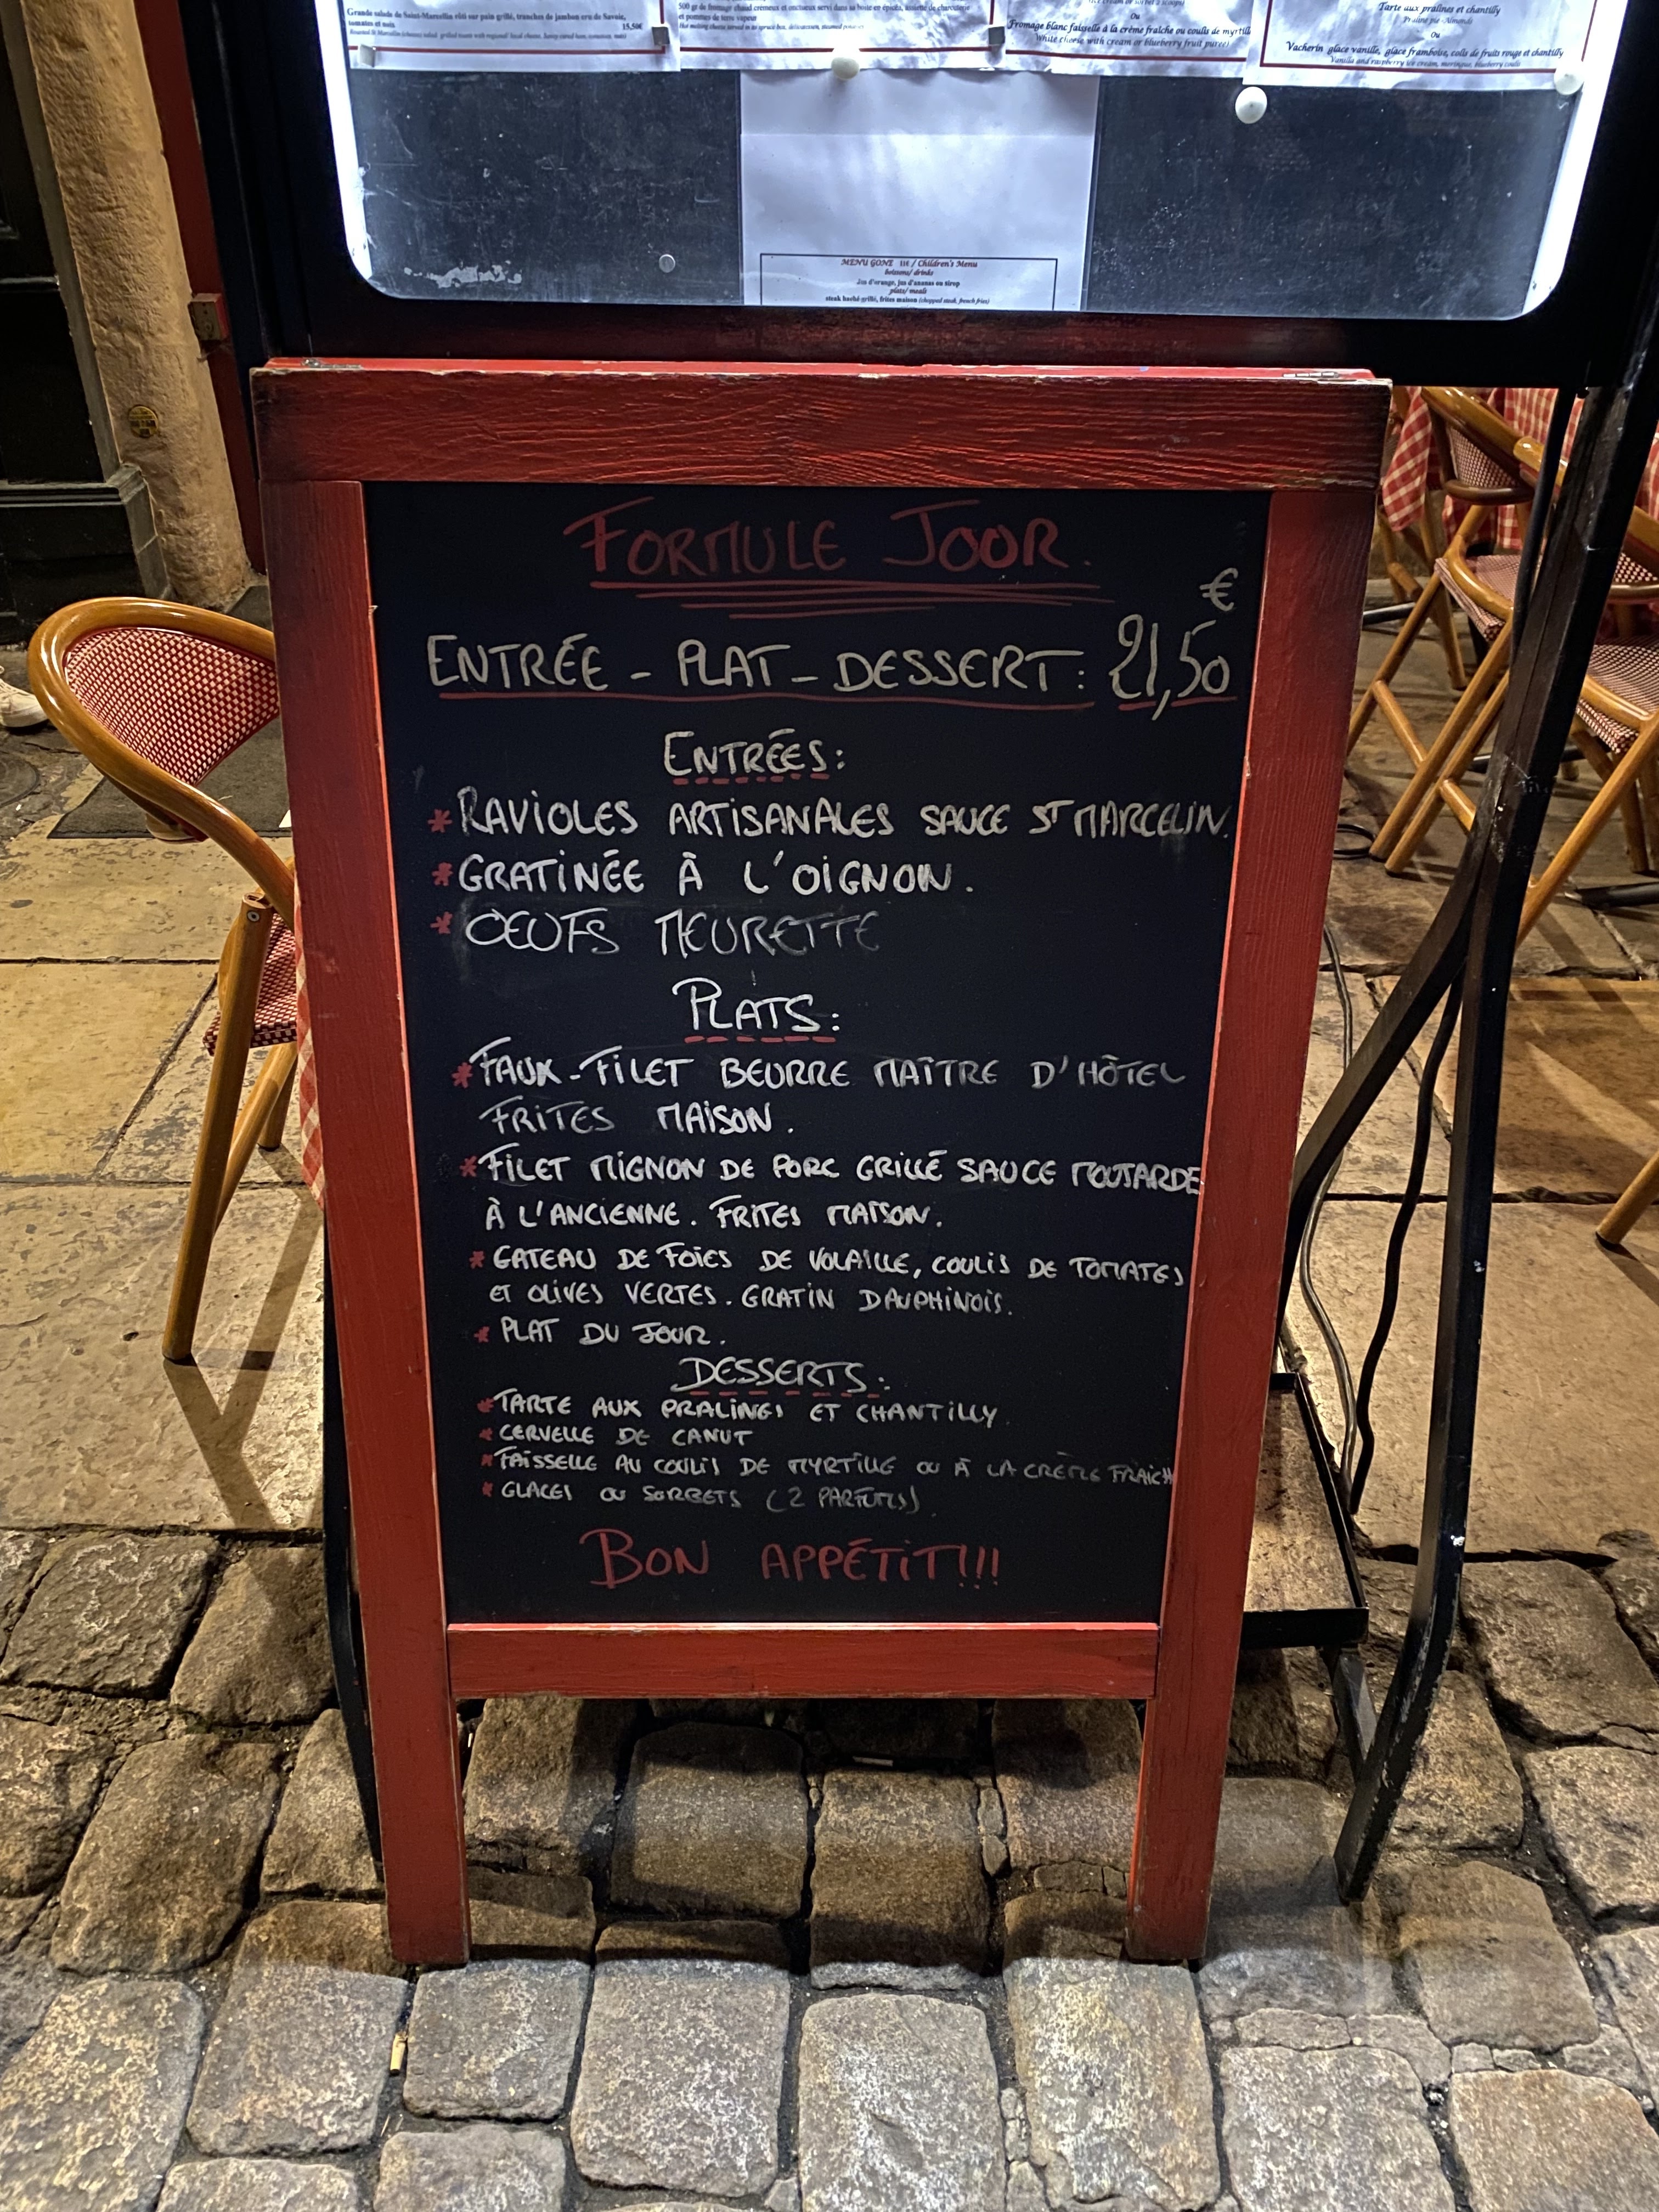 Grande salade de Saint-Marcellin rôti sur pain grillé, tranches de jambon cru de Savoie,
tomates et noix
15,50€
500 gr de fromage chaud crémeux et onctueux servi dans sa boîte en épicéa, assiette de charcuterie
et pommes de terre vapeur
Ou
Fromage blanc faisselle à la crème fraîche ou coulis de myrtill
White cheese with cream or blueberry fruit puree)
Tarte aux pralines et chantilly
Praline pie - Almonds
Ou
Vacherin glace vanille, glace framboise, colis de fruits rouge et chantilly
Vanilla and raspberry ice cream, meringue, blueberry coulis
MENU GONE 11€ / Children's Menu
boissons/ drinks
Jus d'orange, jus d'ananas ou sirop
plats/ meals
steak haché grillé, frites maison (chopped steak, french fries)
FORMULE JOOR.
€
ENTRÉE - PLAT - DESSERT: 21,50
ENTRÉES:
* RAVIOLES ARTISANALES SAUCE ST MARCELIN.
* GRATINÉE À L'OIGNON.
* OEUFS MEURETTE
PLATS:
* FAUX-FILET BEURRE MAÎTRE D'HÔTEL
FRITES MAISON.
* FILET MIGNON DE PORC GRILLÉ SAUCE MOUTARDE
À L'ANCIENNE. FRITES MAISON.
* GATEAU DE FOIES DE VOLAILLE, COULIS DE TOMATES
ET OLIVES VERTES. GRATIN DAUPHINOIS.
* PLAT DU JOUR.
DESSERTS:
* TARTE AUX PRALINES ET CHANTILLY.
* CERVELLE DE CANUT
* FAISSELLE AU COULIS DE MYRTILLE OU À LA CRÈME FRAICH
* GLACES OU SORBETS (2 PARFUMS)
BON APPÉTIT!!!